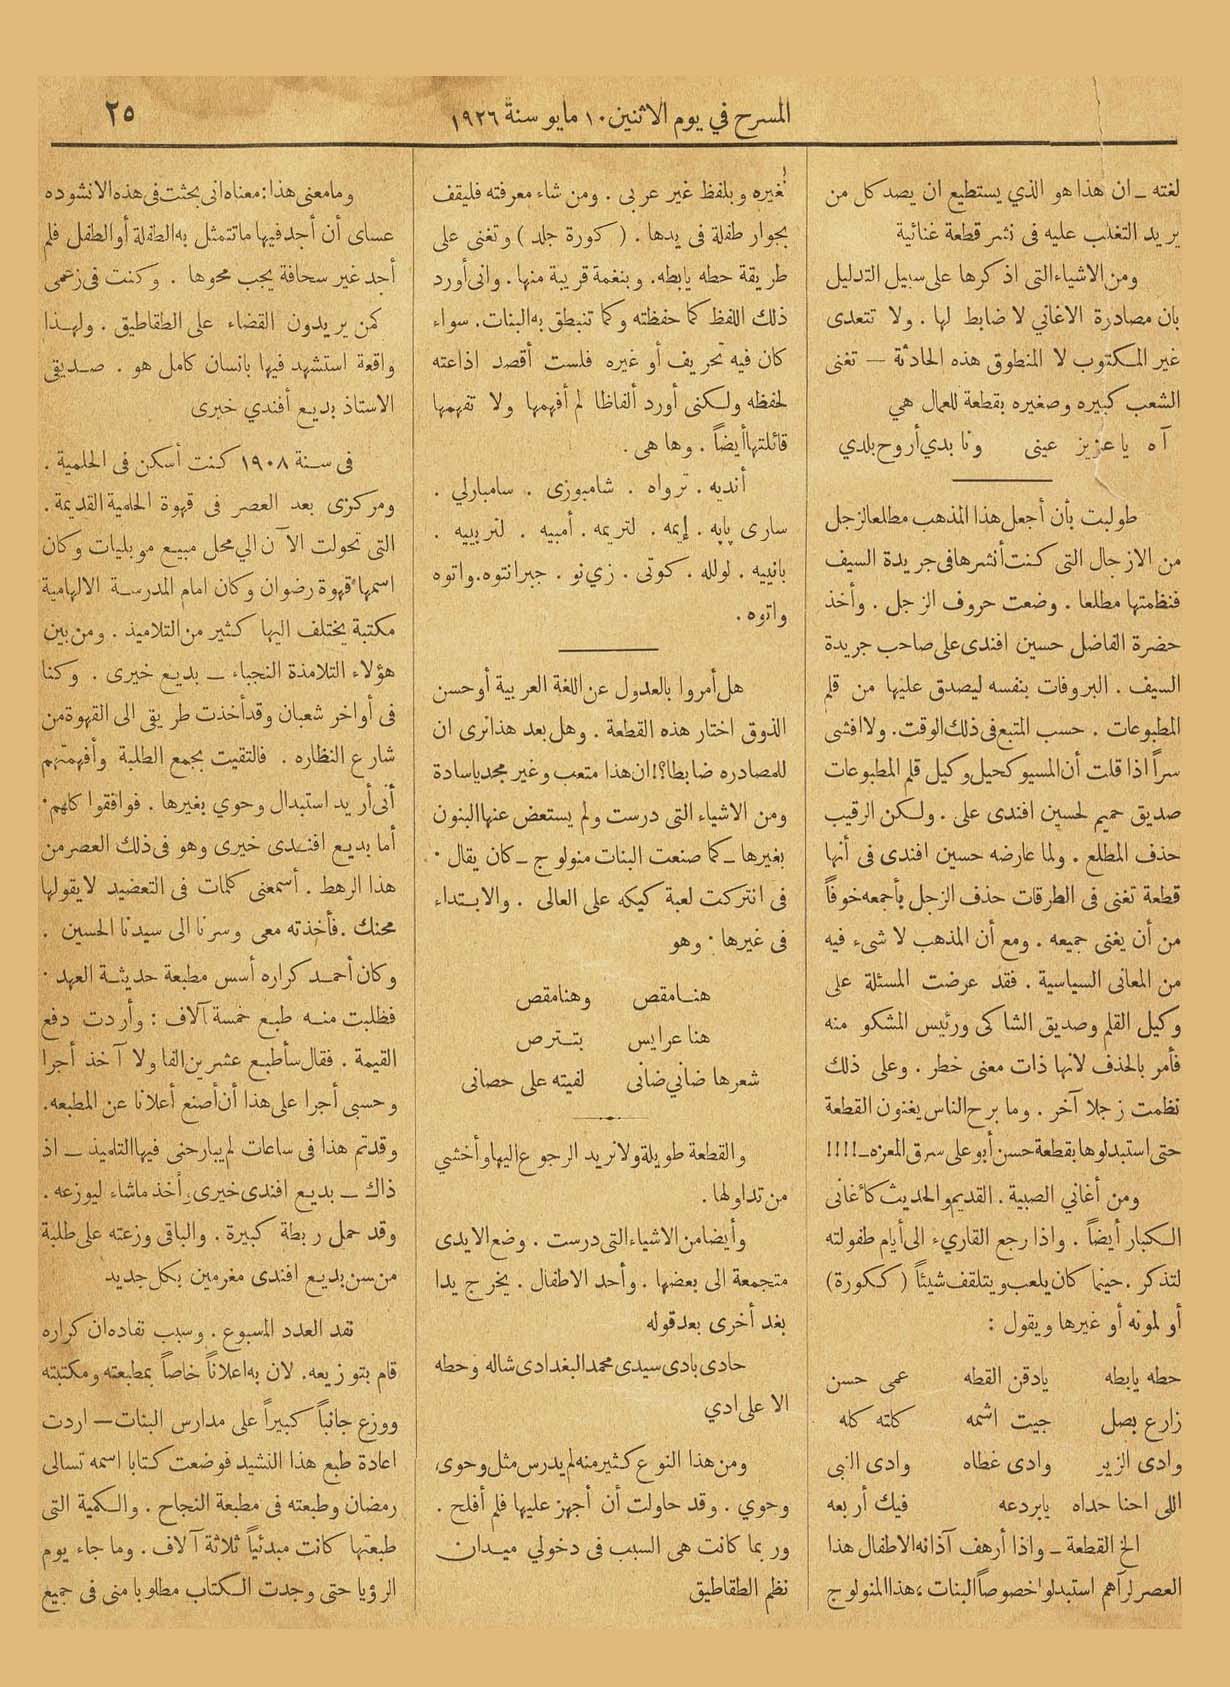 المسرح في يوم الاثنين ١٠ مايو سنة ١٩٢٦
٢٥
لغته ــ ان هذا هو الذي يستطيع ان يصد كل من
يريد التغلب عليه فى نشر قطعة غنائية
ومن الاشياء التى اذكرها على سبيل التدليل
بان مصادرة الاغاني لا ضابط لها . ولا تتعدى
غير المكتوب لا المنطوق هذه الحادثة — تغنى
الشعب كبيره وصغيره بقطعة للعمال هي
آه يا عزيز عينى ونا بدي أروح بلدي
طولبت بأن أجعل هذا المذهب مطلعا لزجل
من الازجال التى كنت أنشرها فى جريدة السيف
فنظمتها مطلعا . وضعت حروف الزجل . وأخذ
حضرة الفاضل حسين افندى على صاحب جريدة
السيف . البروفات بنفسه ليصدق عليها من قلم
المطبوعات . حسب المتبع فى ذلك الوقت . ولا افشى
سراً اذا قلت أن المسيو كحيل وكيل قلم المطبوعات
صديق حميم لحسين افندى على . ولكن الرقيب
حذف المطلع . ولما عارضه حسين افندى فى أنها
قطعة تغنى فى الطرقات حذف الزجل بأجمعه خوفاً
من أن يغنى جميعه . ومع أن المذهب لا شىء فيه
من المعانى السياسية . فقد عرضت المسئلة على
وكيل القلم وصديق الشاكى ورئيس المشكو منه
فأمر بالحذف لانها ذات معنى خطر . وعلى ذلك
نظمت زجلا آخر . وما برح الناس يغنون القطعة
حتى استبدلوها بقطعة حسن أبو على سرق المعزه ــ !!!!
ومن أغاني الصبية . القديم والحديث كأغانى
الكبار أيضاً . واذا رجع القاريء الى أيام طفولته
لتذكر . حينما كان يلعب ويتلقف شيئاً (ككورة)
أو لمونه أو غيرها ويقول :
حطه يابطه يادقن القطه عمى حسن
زارع بصل جيت اشمه كلته كله
وادى الزير وادى غطاه وادى النبى
اللى احنا حداه يابردعه فيك أربعه
الخ القطعة ــ واذا أرهف آذانه الاطفال هذا
العصر لرآهم استبدلوا خصوصاً البنات ، هذا المنولوج
بغيره وبلفظ غير عربى . ومن شاء معرفته فليقف
بجوار طفلة فى يدها . ( كورة جلد ) وتغنى على
طريقة حطه يابطه . وبنغمة قريبة منها . وانى أورد
ذلك اللفظ كما حفظته وكما تنبطق به البنات . سواء
كان فيه تحريف أو غيره فلست أقصد اذاعته
لحفظه ولكنى أورد ألفاظا لم أفهمها ولا تفهمها
قائلتها أيضاً . وها هى .
أنديه . ترواه . شامبوزى . سامبارلي .
سارى پاپه . إيمه . لتريمه . أمبيه . لتربييه .
بانييه . لولله . كوتى . زي نو . جبرانتوه . واتوه
واتوه .
هل أمروا بالعدول عن اللغة العربية أو حسن
الذوق اختار هذه القطعة . وهل بعد هذا نرى ان
للمصادره ضابطا ؟! ان هذا متعب وغير مجد يا سادة
ومن الاشياء التى درست ولم يستعض عنها البنون
بغيرها ــ كما صنعت البنات منولوج ــ كان يقال .
فى انتركت لعبة كيكه على العالى . والابتداء
فى غيرها . وهو
هنا مقص وهنا مقص
هنا عرايس بتترص
شعرها ضانى ضانى لفيته على حصانى
والقطعة طويلة ولا نريد الرجوع اليها وأخشي
من تداولها .
وأيضا من الاشياء التى درست . وضع الايدى
متجمعة الى بعضها . وأحد الاطفال . يخرج يدا
بعد أخرى بعد قوله
حادى بادى سيدى محمد البغدادى شاله وحطه
الا على ادي
ومن هذا النوع كثير منه لم يدرس مثل وحوى
وحوي . وقد حاولت أن أجهز عليها فلم أفلح .
وربما كانت هى السبب فى دخولي ميدان
نظم الطقاطيق
وما معنى هذا : معناه انى بحثت فى هذه الانشوده
عساى أن أجد فيها ما تتمثل به الطفلة أو الطفل فلم
أجد غير سخافة يجب محوها . وكنت فى زعمى
كمن يريدون القضاء على الطقاطيق . ولهذا
واقعة استشهد فيها بانسان كامل هو . صديقى
الاستاذ بديع أفندي خيرى
فى سنة ١٩٠٨ كنت أسكن فى الحلمية .
ومركزى بعد العصر فى قهوة الحلمية القديمة .
التى تحولت الآن الي محل مبيع موبليات وكان
اسمها قهوة رضوان وكان امام المدرسة الالهامية
مكتبة يختلف اليها كثير من التلاميذ . ومن بين
هؤلاء التلامذة النجباء ــ بديع خيرى . وكنا
فى أواخر شعبان وقد أخذت طريقى الى القهوة من
شارع النظاره . فالتقيت بجمع الطلبة وأفهمتهم
أنى أريد استبدال وحوي بغيرها . فوافقوا كلهم .
أما بديع افندى خيرى وهو فى ذلك العصر من
هذا الرهط . أسمعنى كلمات فى التعضيد لا يقولها
محنك . فأخذته معى وسرنا الى سيدنا الحسين .
وكان أحمد كراره أسس مطبعة حديثة العهد .
فطلبت منه طبع خمسة آلاف : وأردت دفع
القيمة . فقال سأطبع عشرين الفا ولا آخذ أجرا
وحسبى أجرا على هذا أن أصنع أعلانا عن المطبعه .
وقد تم هذا فى ساعات لم يبارحنى فيها التلميذ ــ اذ
ذاك ــ بديع افندى خيرى . أخذ ما شاء ليوزعه .
وقد حمل ربطة كبيرة . والباقى وزعته على طلبة
من سن بديع افندى مغرمين بكل جديد
نفد العدد المسبوع . وسبب نفاده ان كراره
قام بتوزيعه . لان به اعلاناً خاصاً بمطبعته ومكتبته
ووزع جانباً كبيراً على مدارس البنات — اردت
اعادة طبع هذا النشيد فوضعت كتابا اسمه تسالى
رمضان وطبعته فى مطبعة النجاح . والكمية التى
طبعتها كانت مبدئياً ثلاثة آلاف . وما جاء يوم
الرؤيا حتى وجدت الكتاب مطلوبا منى فى جميع